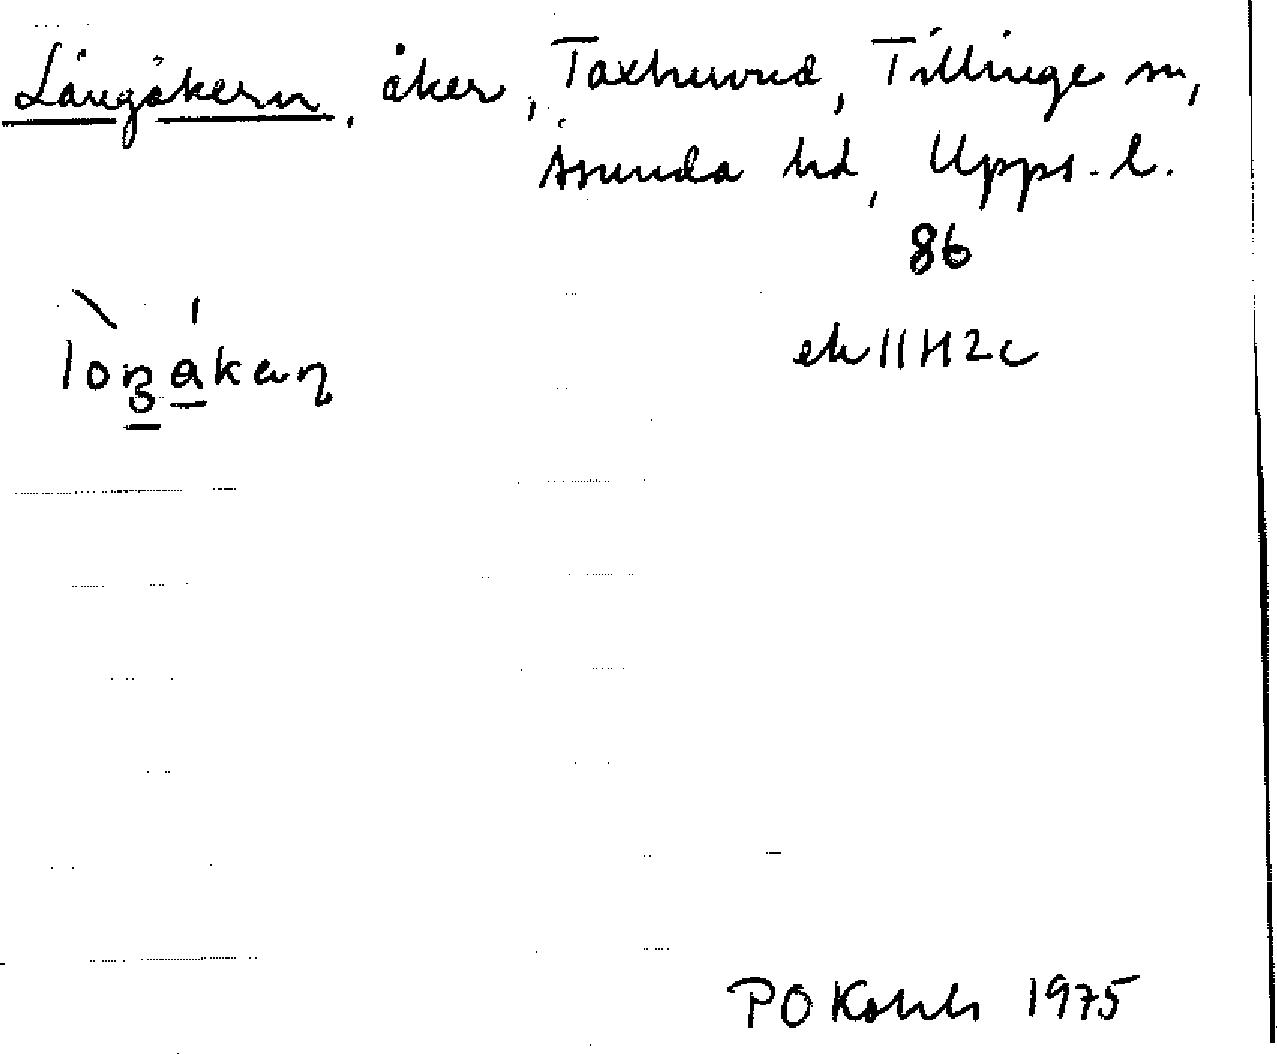 Långåkern, åker, Taxhuvud, Tillinge sn,
Åsunda hd, Upps. l.
86
ek 11 H 2 c
PO 1975